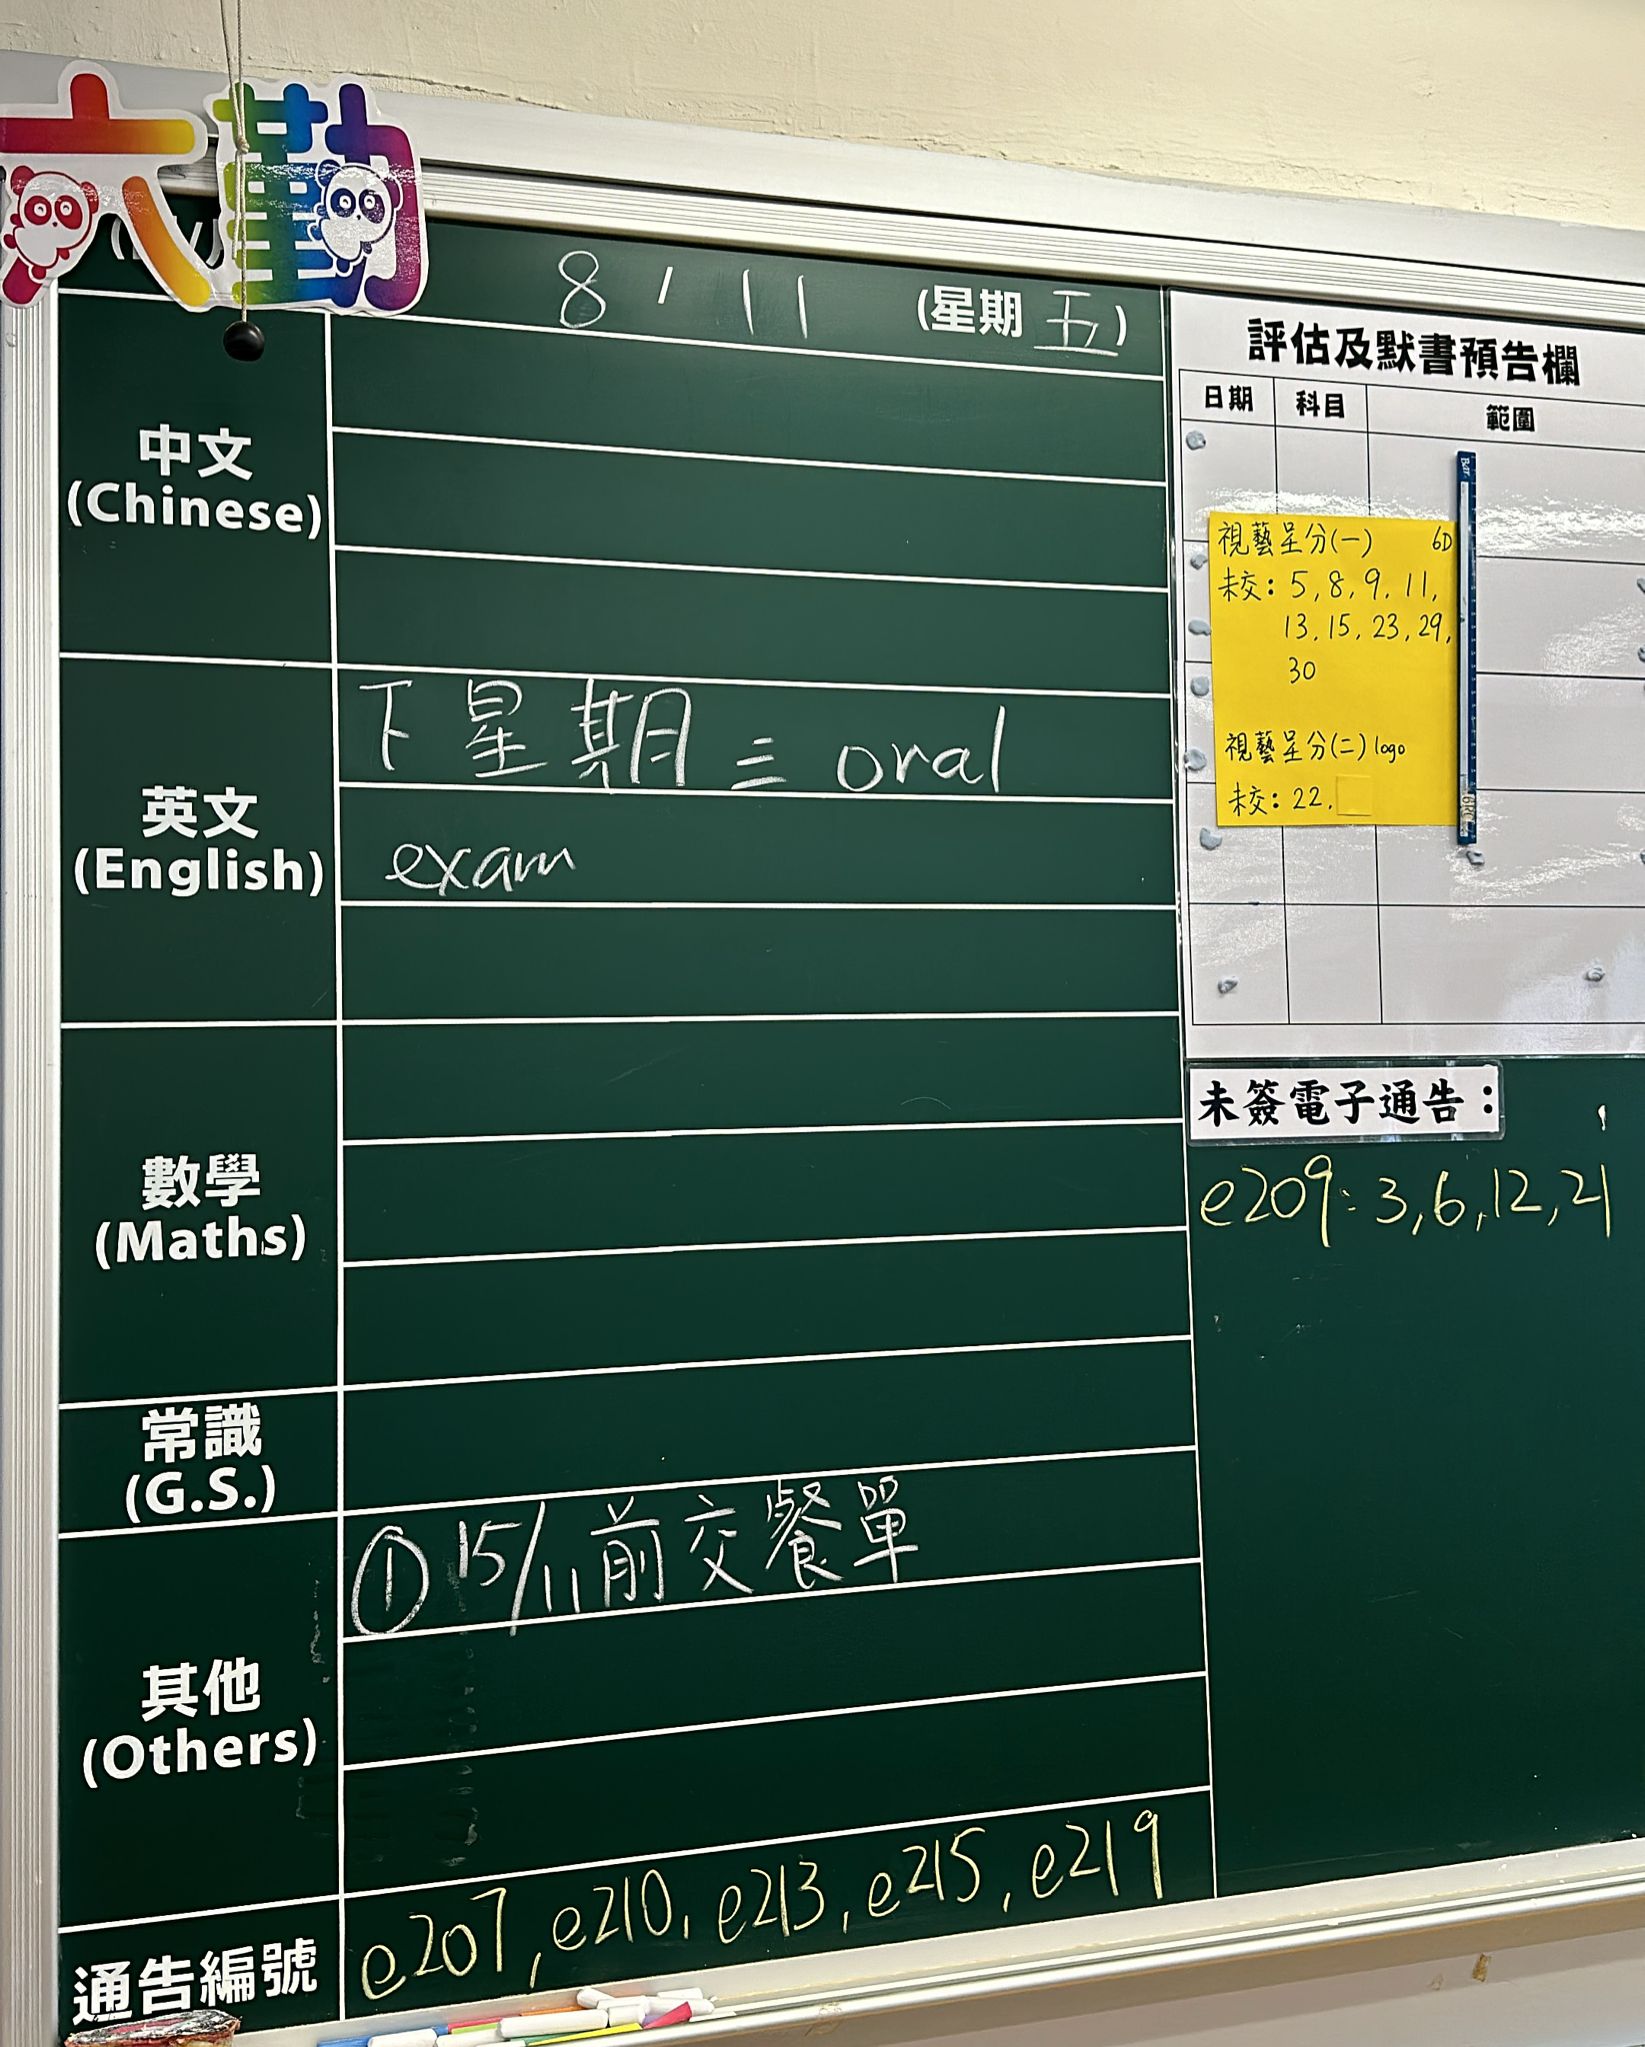 六勤
8 / 11 (星期 五)
中文
(Chinese)
英文
(English)
下星期三 oral
exam
數學
(Maths)
常識
(G.S.)
其他
(Others)
① 15/11前交餐單
通告編號
e207, e210, e213, e215, e219
評估及默書預告欄
日期 科目 範圍
視藝呈分(一) 6D
未交: 5, 8, 9, 11,
13, 15, 23, 29,
30
視藝呈分(二) logo
未交: 22,
未簽電子通告:
e209: 3, 6, 12, 21